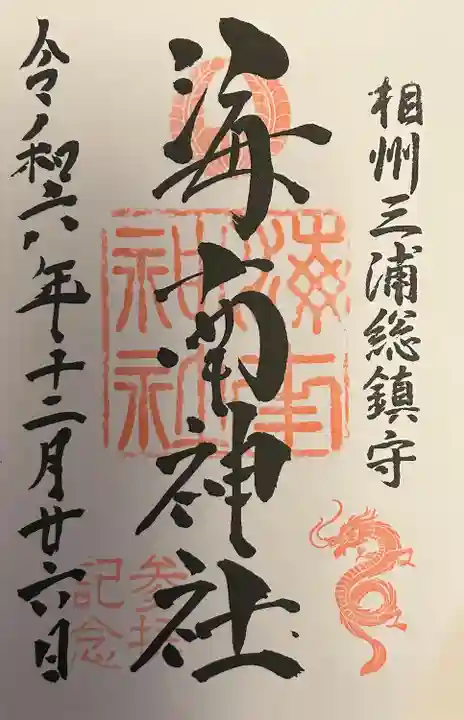 相州三浦総鎮守
海南神社
海南神社
令和六年十二月廿六日
参拝
記念